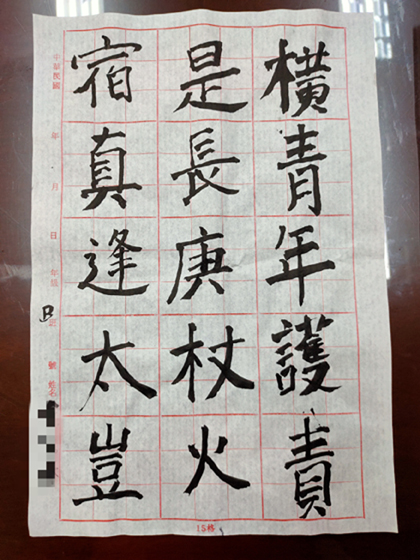 橫青年護責
是長庚杖火
宿真逢太豈
中華民國 年 月 日
號 姓名
15格